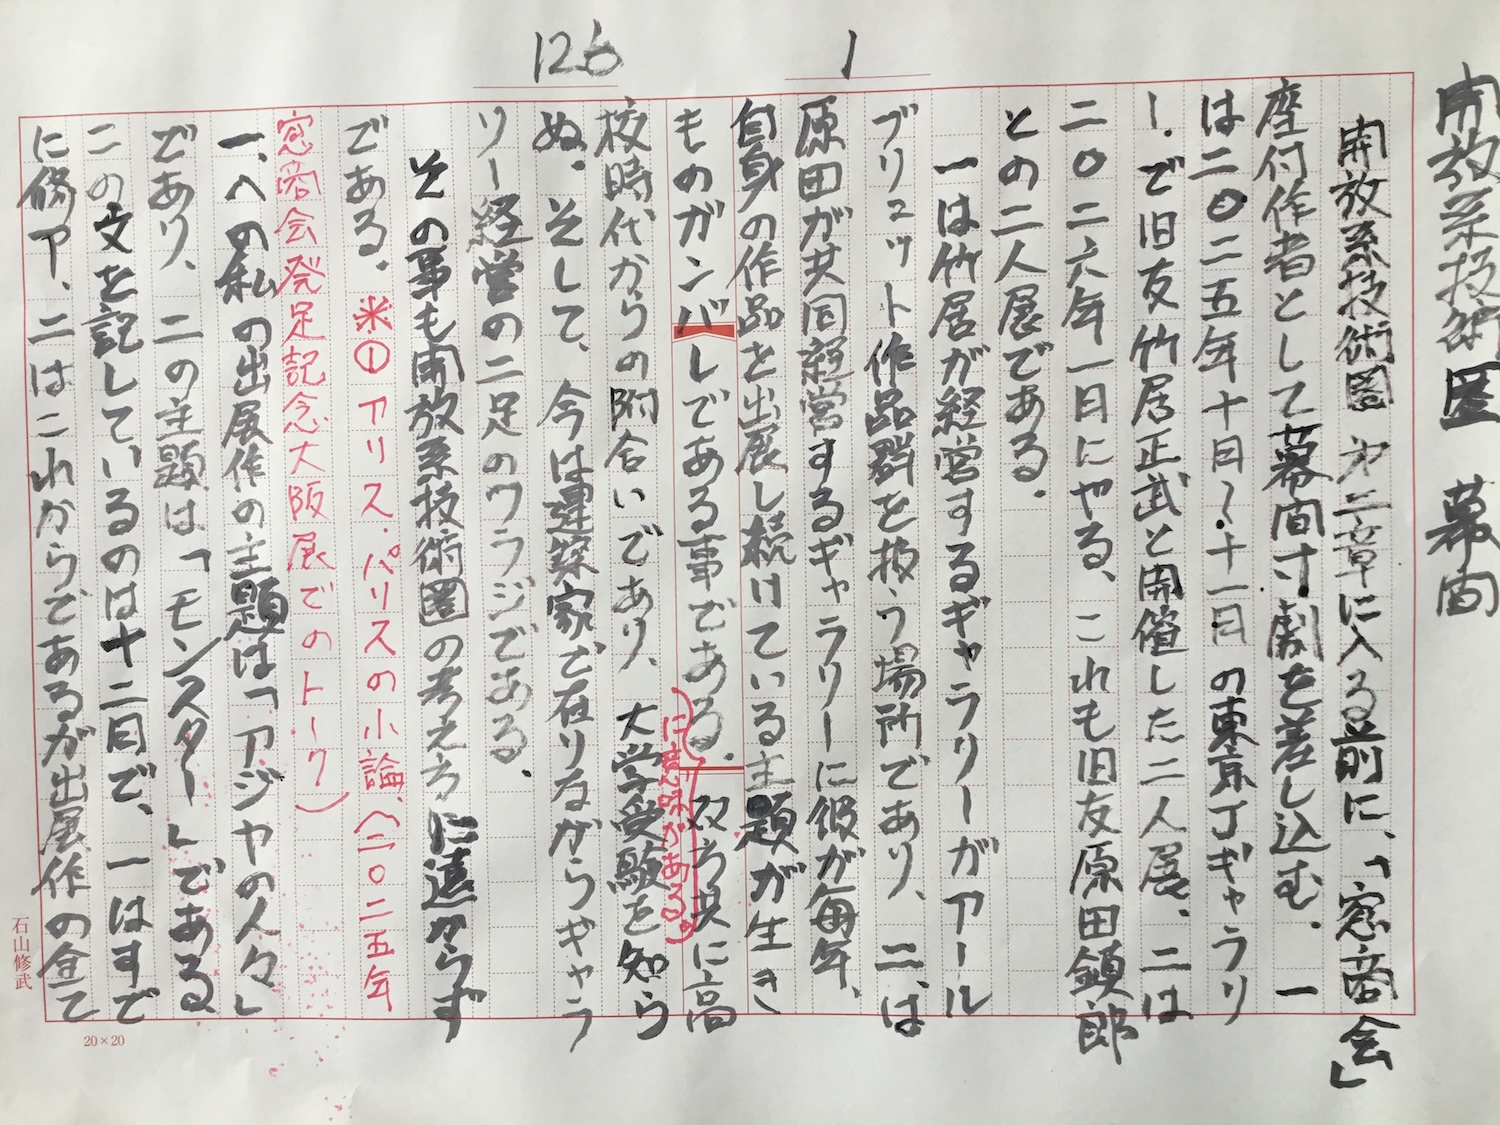 開放系技術圏 幕間
1
126
開放系技術圏 第二章に入る前に、「窓商会」
座付作者として幕間寸劇を差し込む。一
は二〇二五年十月〜十一月の東京Jギャラリ
ー、で旧友竹居正武と開催した二人展、二は
二〇二六年一月にやる、これも旧友原田鎮郎
との二人展である。
一は竹居が経営するギャラリーがアール
ブリュット作品群を扱う場所であり、二は
原田が共同経営するギャラリーに彼が毎年、
自身の作品を出展し続けている主題が生き
ものガンバしである事である。双方共に高
に意味がある。
校時代からの附合いであり、大学受験を知ら
ぬ。そして、今は建築家で在りながらギャラ
リー経営の二足のワラジである。
その事も開放系技術圏の考え方に遠からず
である。※① アリス・パリスの小論、(二〇二五年
窓商会発足記念大阪展でのトーク)
一、への私の出展作の主題は「アジヤの人々」
であり、二の主題は「モンスター」である
この文を記しているのは十二月で、一はすで
に修了、二はこれからであるが出展作の全て
石山修武
20×20